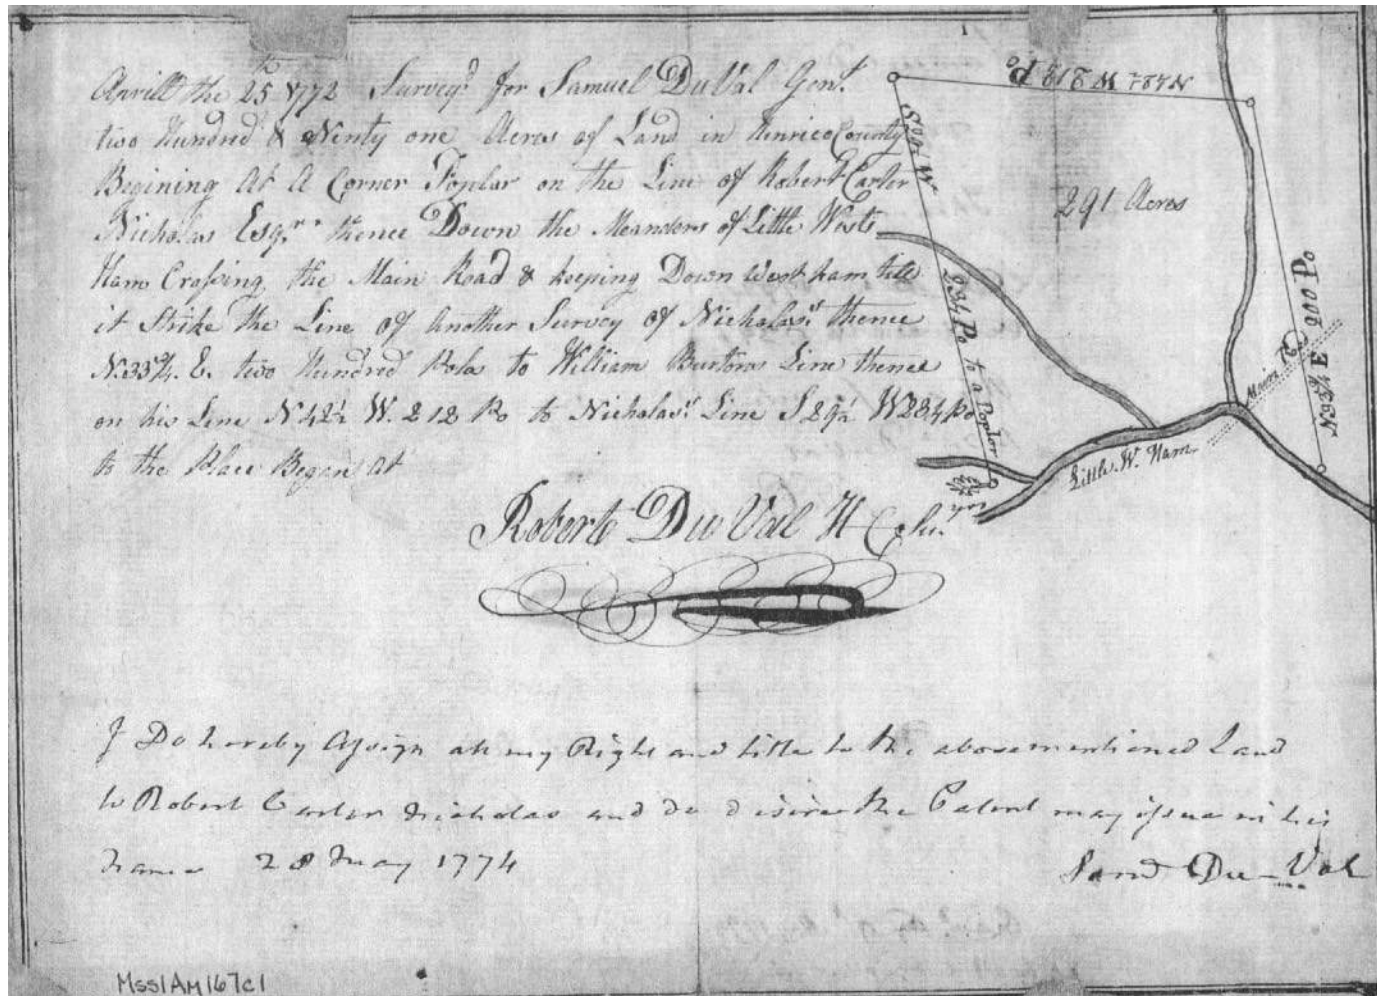 Aprill the 25th 1772 Surveyd for Samuel DuVal Gent.
two Hundred & Ninty one Acres of Land in Henrico County
Begining At A Corner Poplar on the Line of Robert Carter
Nicholas Esqr. thence Down the Meanders of Little West
Ham Crossing the Main Road & keeping Down westham till
it Strike the Line of Another Survey of Nicholas's thence
N.33¾. E. two Hundred Poles to William Burtons Line thence
on his Line N 42½ W. 212 Po to Nicholas's Line S 29½ W 234 po
to the Place Began at
Robert DuVal H C
N42½ W 212 Po
S29½ W
234 Po to a Poplar
291 Acres
N33¾ E 200 Po
Main
Little W. Ham
I Do hereby Assign all my Right and title to the abovementioned Land
to Robert Carter Nicholas and do desire the Patent may issue in his
Name 28 May 1774
Saml Du-Val
Mss1Am167c1